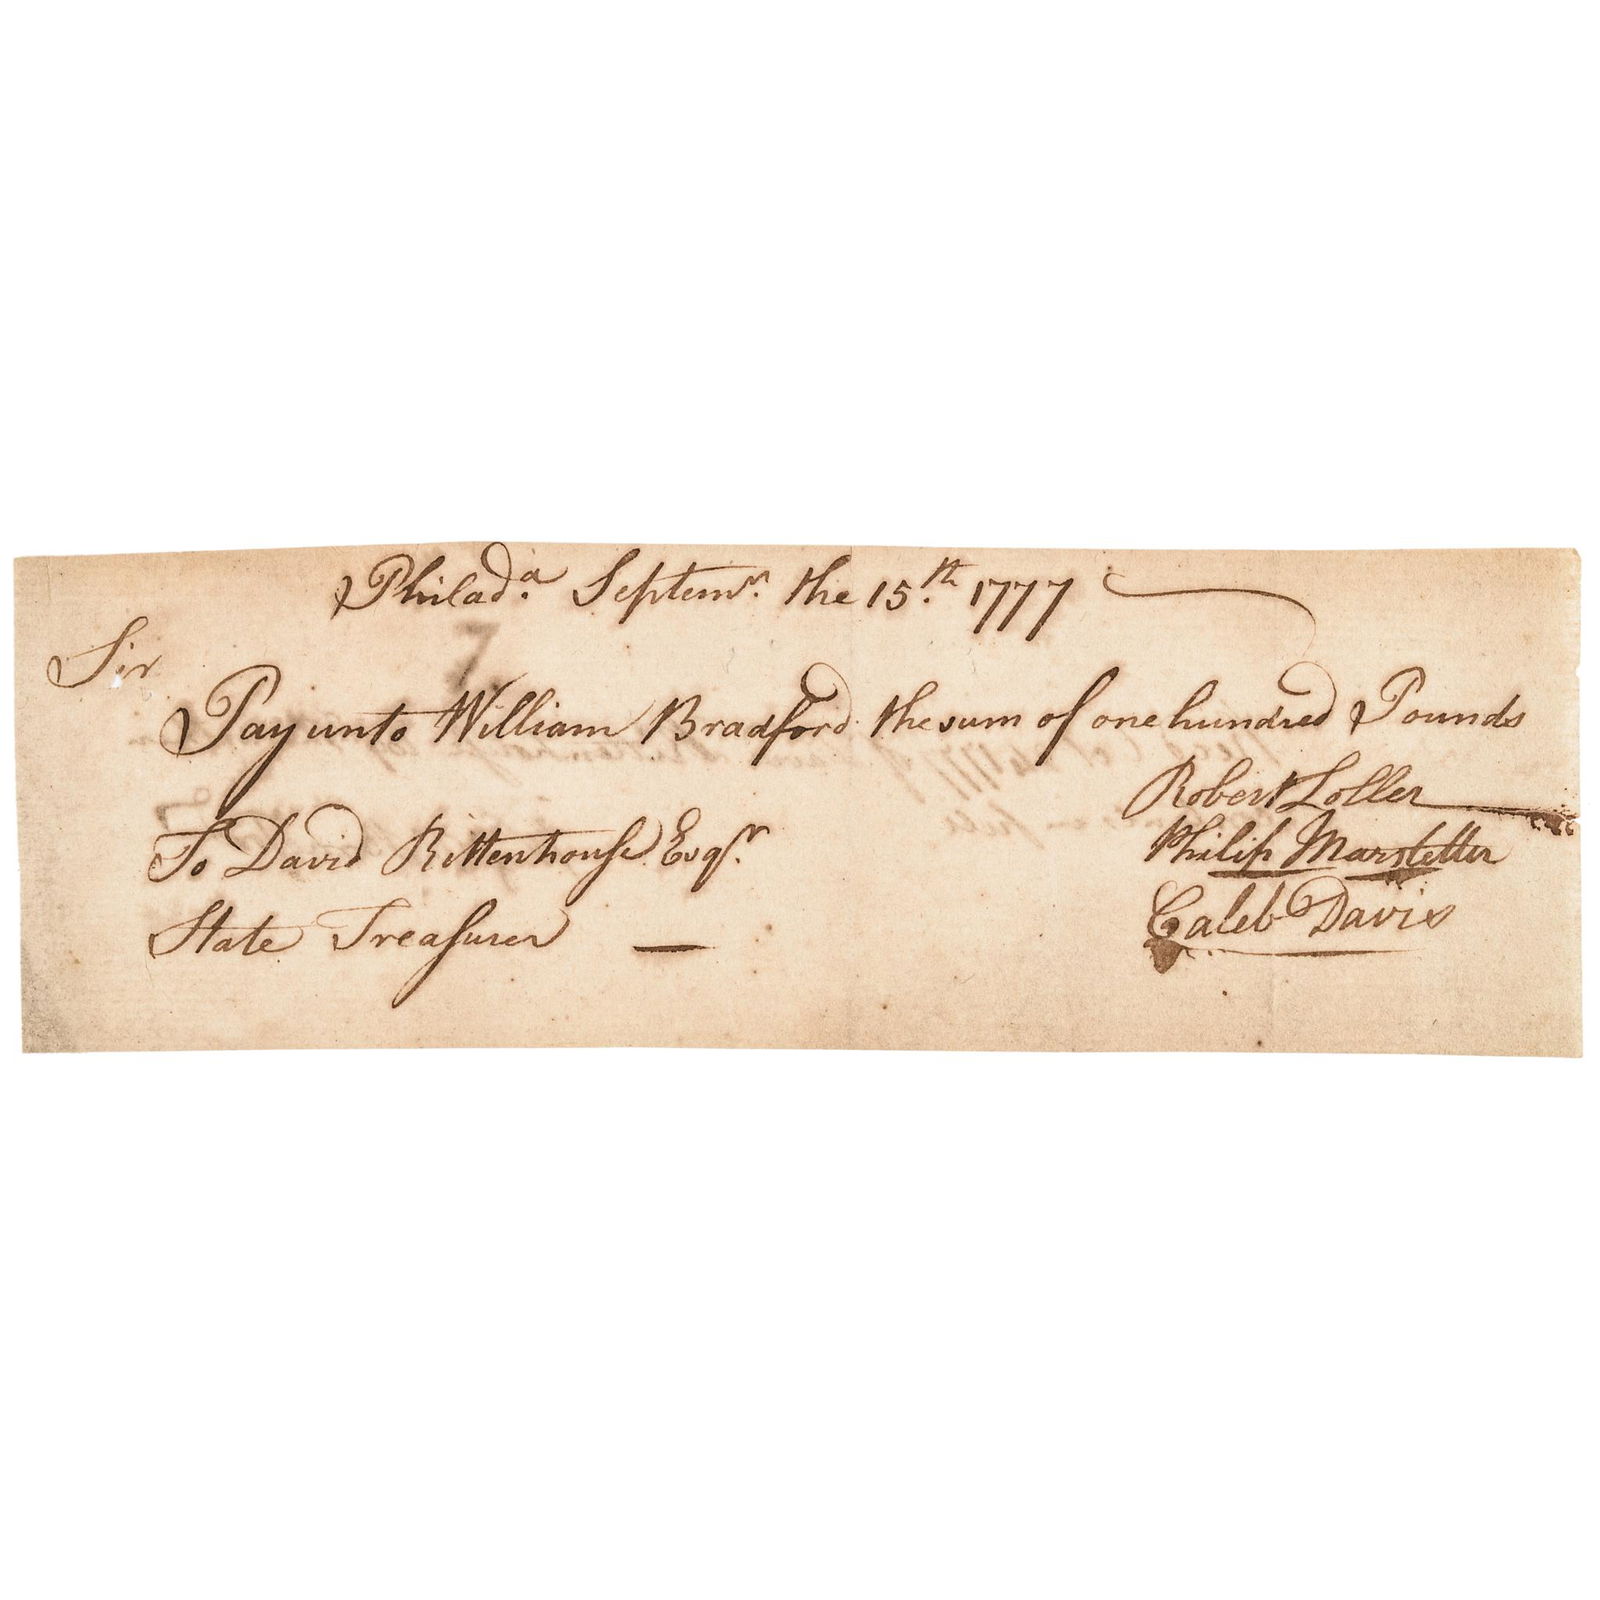 Philad.a Septemr. the 15.th 1777
Sir
Pay unto William Bradford the sum of one hundred Pounds
Robert Loller
Philip Marsteller
Caleb Davis
To David Rittenhouse Esqr.
State Treasurer —